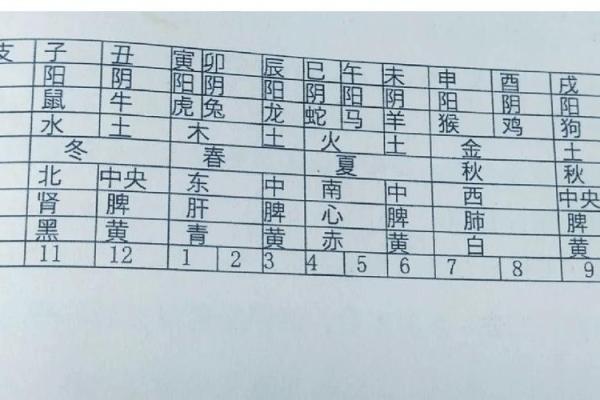 支 子 丑 寅 卯 辰 巳 午 未 申 酉 戌
阳 阴 阳 阴 阳 阴 阳 阴 阳 阴 阳
鼠 牛 虎 兔 龙 蛇 马 羊 猴 鸡 狗
水 土 木 土 火 土 金 土
冬 春 夏 秋 秋
北 中央 东 中 南 中 西 中央
肾 脾 肝 脾 心 脾 肺 脾
黑 黄 青 黄 赤 黄 白 黄
11 12 1 2 3 4 5 6 7 8 9